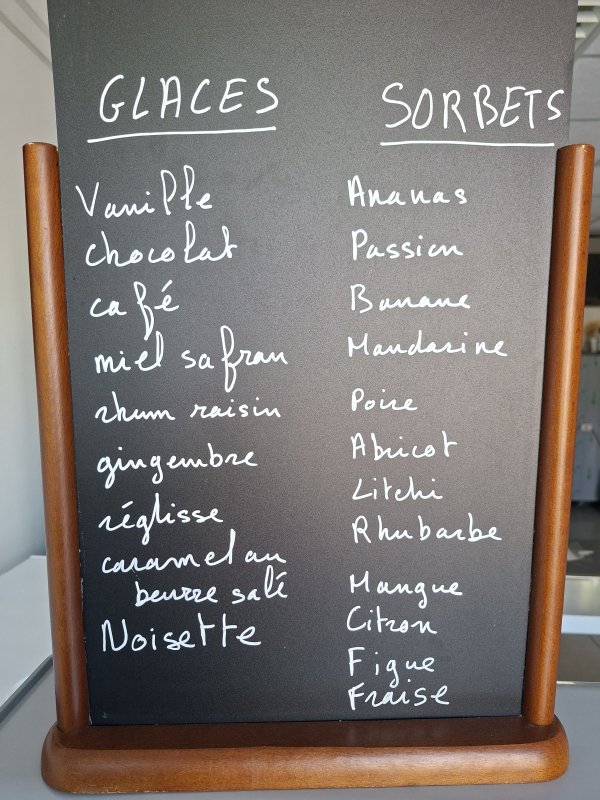 GLACES
Vanille
chocolat
café
miel safran
rhum raisin
gingembre
réglisse
caramel au
beurre salé
Noisette
SORBETS
Ananas
Passion
Banane
Mandarine
Poire
Abricot
Litchi
Rhubarbe
Mangue
Citron
Figue
Fraise